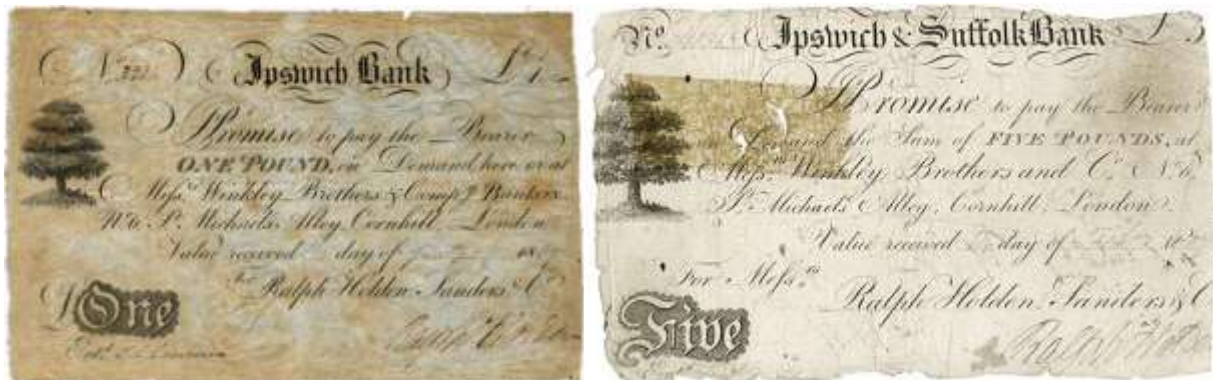 No.
Ipswich Bank
£
I Promise to pay the Bearer
ONE POUND, on Demand here or at
Messrs Winkley Brothers & Compy Bankers
No 6 St. Michaels Alley Cornhill, London
Value received day of 18
For Ralph Holden Sanders & Co
£One
No.
Ipswich & Suffolk Bank
£5
I Promise to pay the Bearer
on Demand the Sum of FIVE POUNDS, at
Messrs Winkley Brothers and Co. No 6,
St. Michaels Alley, Cornhill, London.
Value received day of 18
For Messrs
Ralph Holden Sanders & C
Five